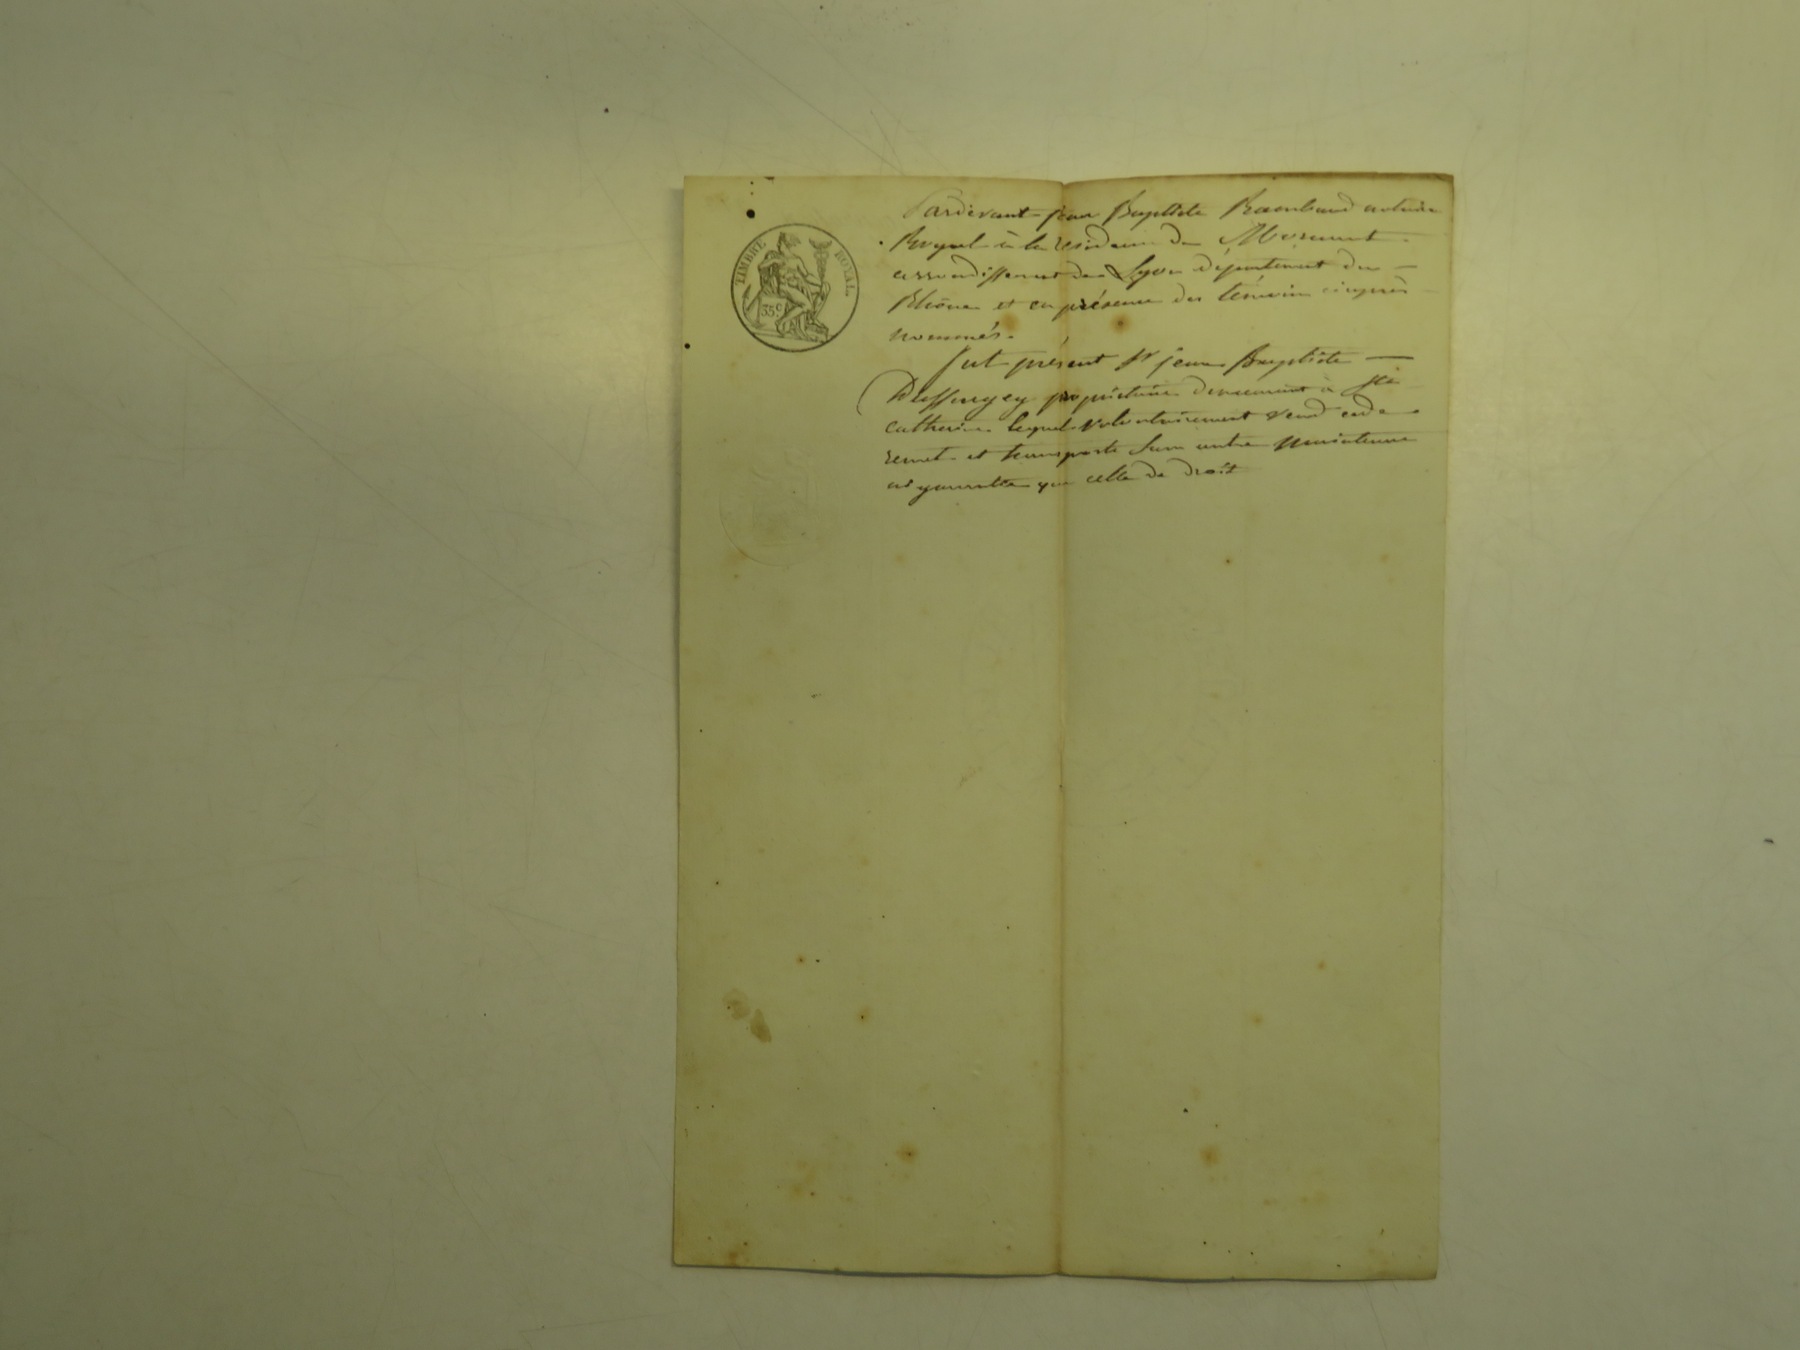 TIMBRE ROYAL.
35 c
Pardevant jean Baptiste Raimbaud notaire
Royal à la résidence de Mornant
arrondissement de Lyon département du
Rhône et en présence des témoins cinquès
nommés.
fut présent Sr jean Baptiste
propriétaire demeurant à Ste
catherine lequel volontairement vend cede
remet et transporte sans autre maintenue
ni garantie que celle de droit